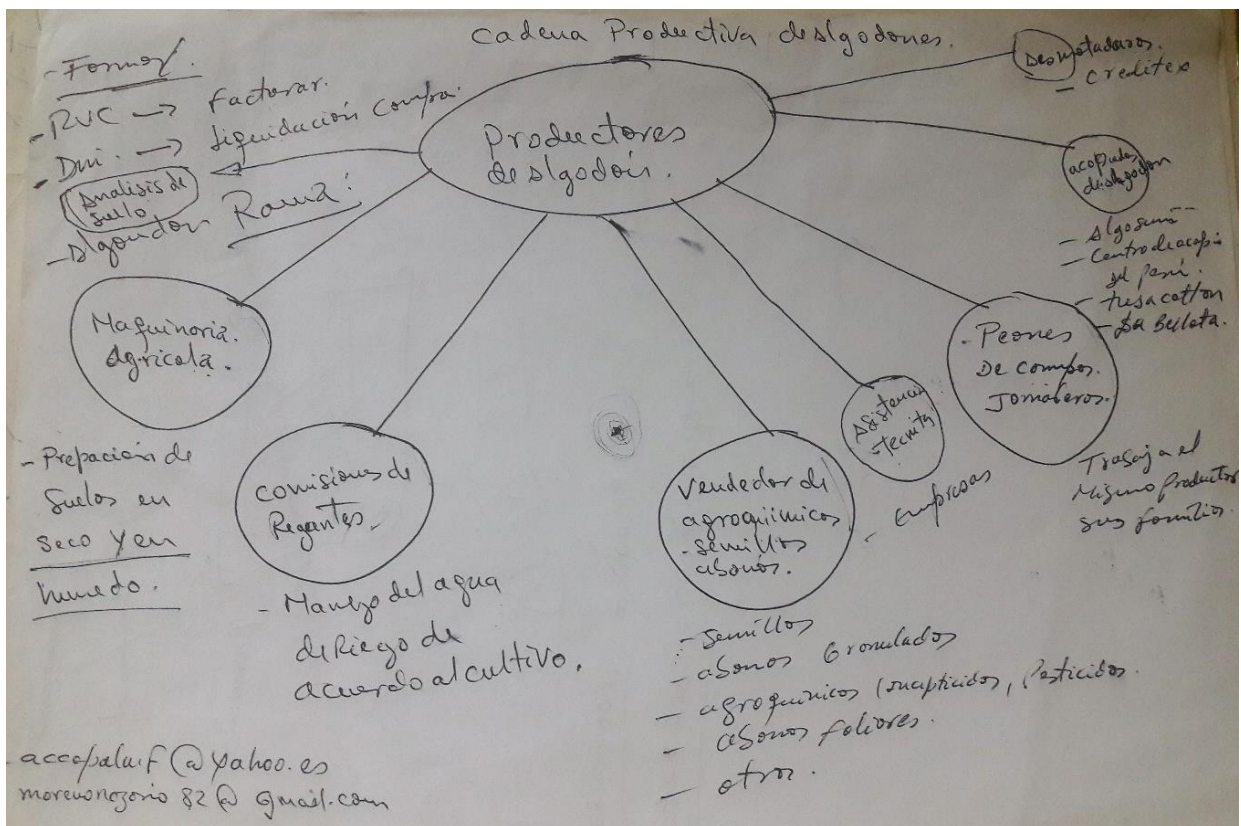 Cadena Productiva de Algodones.
- Formal.
- RUC → Facturar.
- Dni. → liquidación compra.
Analisis de
suelo
- Algondon Rama:
Productores
de Algodón.
Desmotadoros.
- Creditex
acopiador
de algodon
- Algosur
- Centro de acopio
del Perú.
- tusa cotton
- La Bellota.
Maquinaria.
Agricola.
- Prepación de
Suelos en
seco y en
humedo.
Comisiones de
Regantes.
- Manejo del agua
de Riego de
acuerdo al cultivo.
Vendedor de
agroquimicos
- semillas
abonos.
- Semillas
- abonos Granulados
- agroquimicos (, Pesticidas.
- abonos foliares.
- otros.
Asistencia
tecnita
- Empresas
- Peones
De campos.
Jornaleros.
Trabaja el
Mismo productor
sus familias.